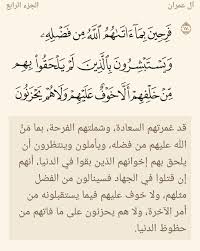 آل عمران
الجزء الرابع
فَرِحِينَ بِمَآ ءَاتَىٰهُمُ ٱللَّهُ مِن فَضْلِهِۦ
وَيَسْتَبْشِرُونَ بِٱلَّذِينَ لَمْ يَلْحَقُوا۟ بِهِم
مِّنْ خَلْفِهِمْ أَلَّا خَوْفٌ عَلَيْهِمْ وَلَا هُمْ يَحْزَنُونَ
قد غمرتهم السعادة، وشملتهم الفرحة، بما مَنَّ
الله عليهم من فضله، ويأملون وينتظرون أن
يلحق بهم إخوانهم الذين بقوا في الدنيا، أنهم
إن قتلوا في الجهاد فسينالون من الفضل
مثلهم، ولا خوف عليهم فيما يستقبلونه من
أمر الآخرة، ولا هم يحزنون على ما فاتهم من
حظوظ الدنيا.